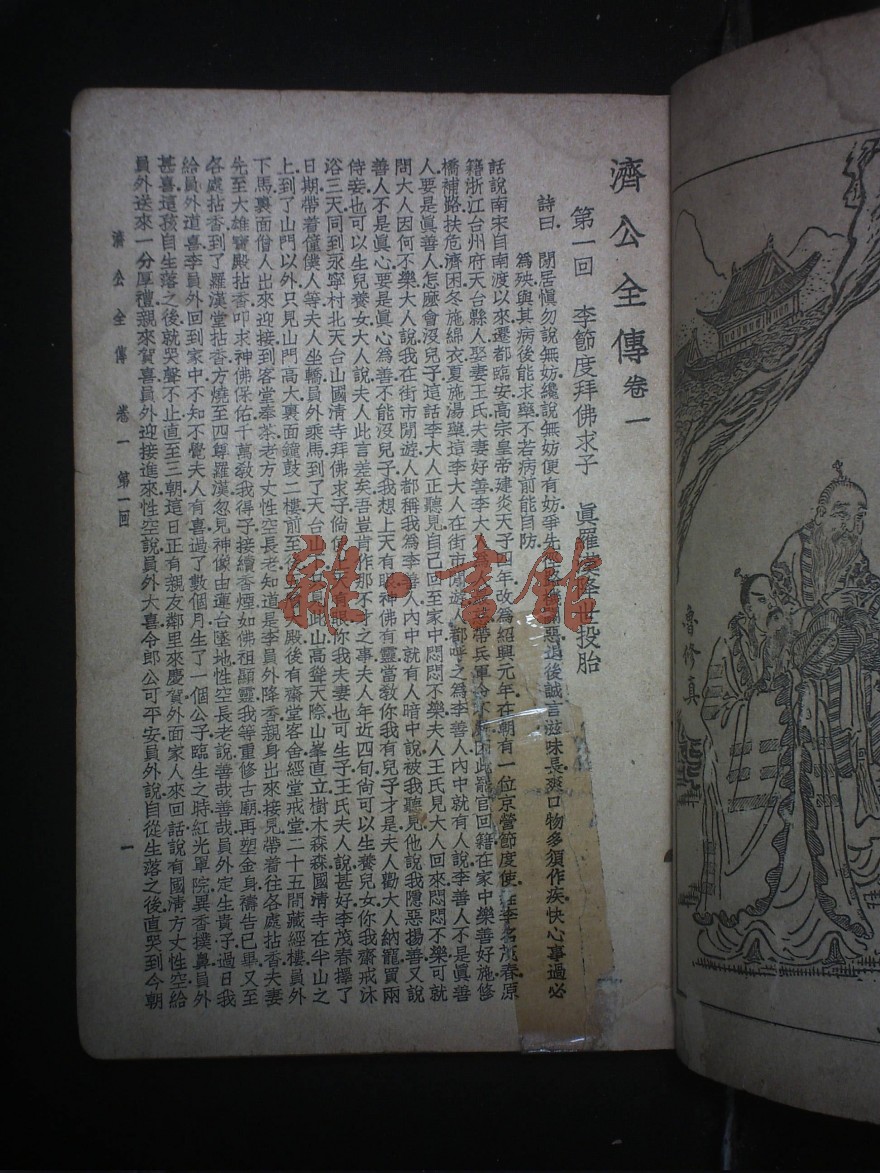 濟公全傳 卷一
第一回 李節度拜佛求子 眞羅漢降世投胎
詩曰 閒居愼勿說無妨纔說無妨便有妨爭先徑路機關惡退後誠言滋味長爽口物多須作疾快心事過必
為殃與其病後能求藥不若病前能自防
話說南宋自南渡以來遷都臨安高宗皇帝建炎天子四年改為紹興元年在朝有一位京營節度使姓李名茂春原
籍浙江台州府天台縣人娶妻王氏夫妻好善李大人為人帶兵軍令不嚴因此罷官回籍在家中樂善好施修
橋補路扶危濟困冬施綿衣夏施湯藥這李大人在街市閒遊人都呼之為李善人內中就有人說李善人不是眞善
人要是眞善人怎麼會沒兒子這話李大人正聽見自己回至家中悶悶不樂夫人王氏見大人回來悶悶不樂可就
問大人因何不樂大人說我在街市閒遊人都稱我為李善人內中就有人暗中說被我聽見他說我隱惡揚善又說
善人不是眞心要是眞心為善不能沒兒子我想上天有眼神佛有靈當敎你我有兒子才是夫人勸大人納寵買兩
侍妾也可以生兒養女大人說夫人此言差矣吾豈肯作那不才之事夫人年近四旬尙可以生養兒女你我齋戒沐
浴三天同到永寧村北天台山國清寺拜佛求子倘使上天有眼你我夫妻也可生子王氏夫人說甚好李茂春擇了
日期帶着僮僕人等夫人坐轎員外乘馬到了天台山下只見此山高聳天際山峯直立樹木森森國清寺在半山之
上到了山門以外只見山門高大裏面鐘鼓二樓前至後五層大殿後有齋堂客舍經堂戒堂二十五間藏經樓員外
下馬裏面僧人出來迎接到客堂奉茶老方丈性空長老知道是李員外降香親身出來接見帶着往各處拈香夫妻
先至大雄寶殿拈香叩求神佛保佑千萬敎我得子接續香煙如佛祖顯靈我等重修古廟再塑金身禱告已畢又至
各處拈香到了羅漢堂拈香方燒至四尊羅漢忽見神像由蓮台墜地性空長老說善哉善哉員外定生貴子過日我
給員外道喜李員外回到家中不知不覺夫人有喜過了數個月生了一個公子臨生之時紅光罩院異香撲鼻員外
甚喜這孩自生落之後就哭聲不止直至三朝這日正有親友鄰里來慶賀外面家人來回話說有國清方丈性空給
員外送來一分厚禮親來賀喜員外迎接進來性空說員外大喜令郎公可平安員外說自從生落之後直哭到今朝
濟公全傳 卷一 第一回
一
魯修真
雜·書館